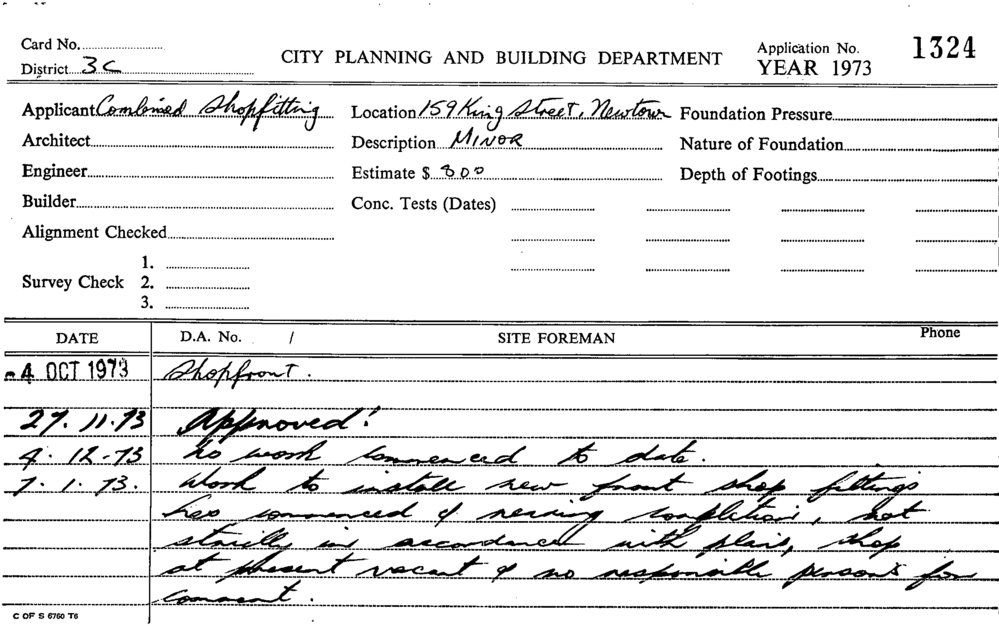 Card No.
CITY PLANNING AND BUILDING DEPARTMENT
Application No. 1324
District 3C
YEAR 1973
Applicant Combined Shopfitting
Location 159 King Street, Newtown
Foundation Pressure
Architect
Description MINOR
Nature of Foundation
Engineer
Estimate $ 800
Depth of Footings
Builder
Conc. Tests (Dates)
Alignment Checked
1.
Survey Check 2.
3.
DATE D.A. No. / SITE FOREMAN Phone
-4 OCT 1973 Shopfront.
27.11.73 Approved!
4.12-73 no work commenced to date.
7.1.73. Work to install new front shop fittings
has commenced & nearing completion, not
strictly in accordance with plans, shop
at present vacant & no responsible persons for
comment.
C OF S 6760 T6